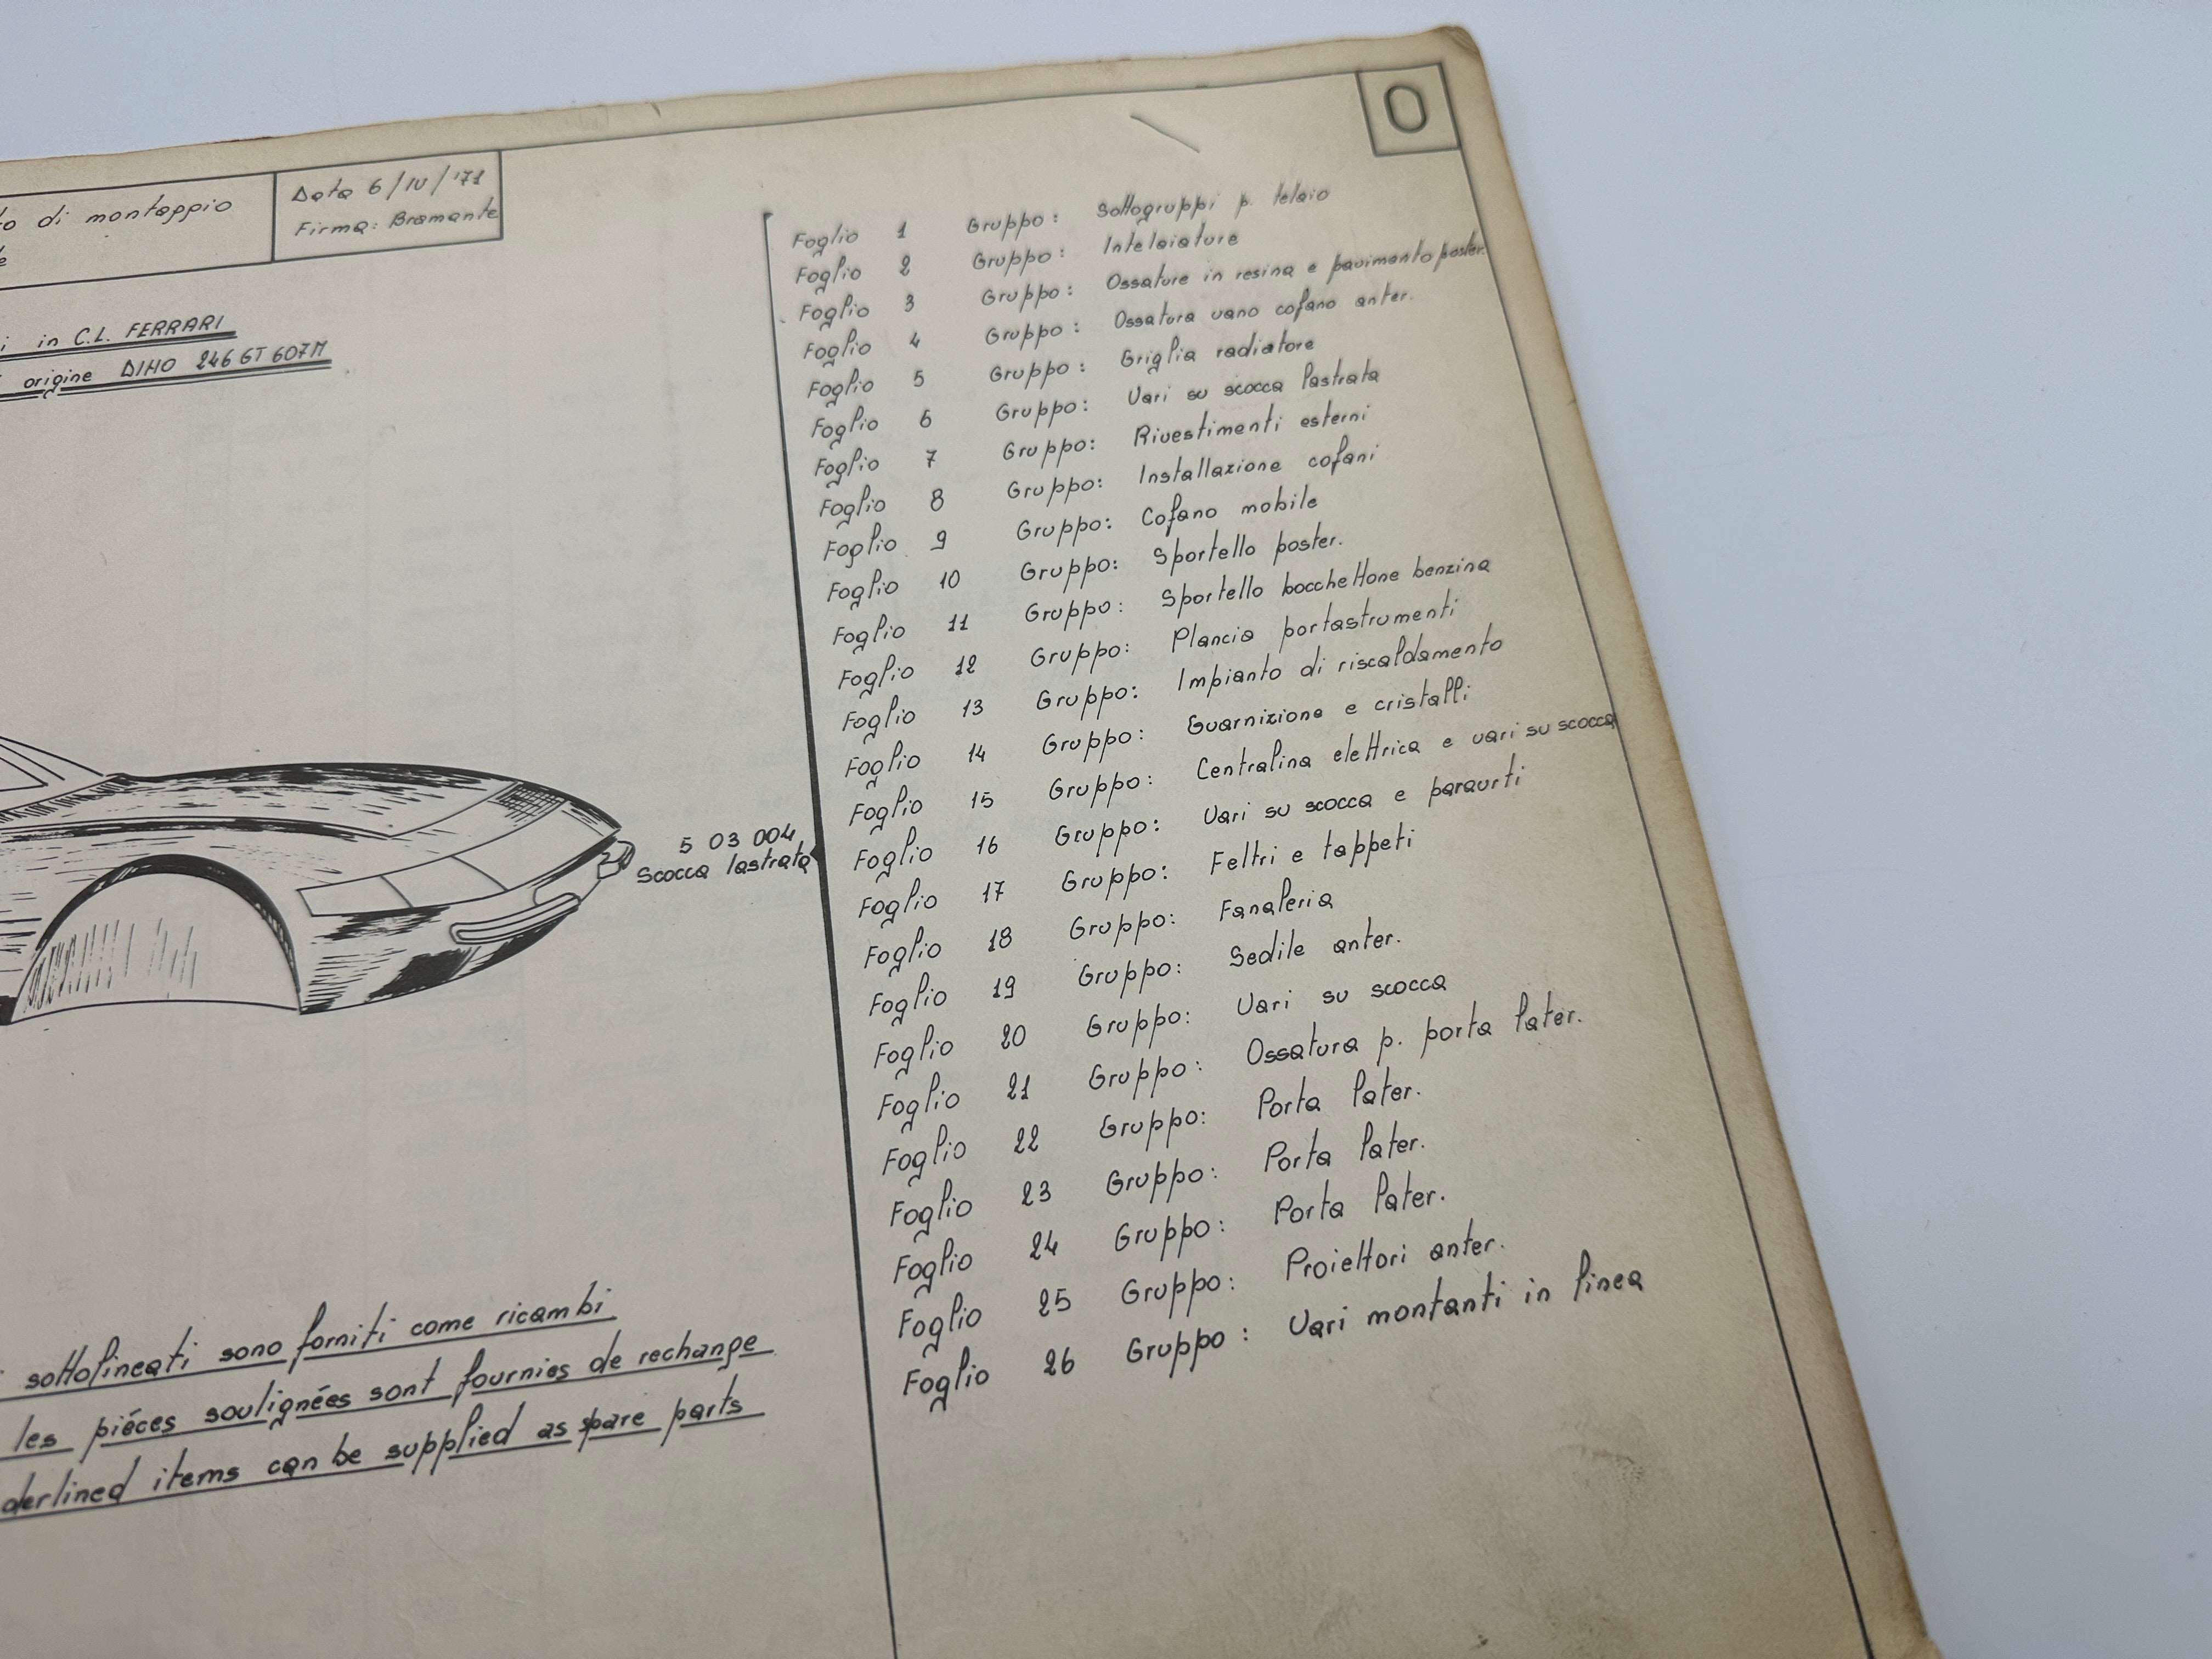 O
di montaggio
Data 6/IV/'71
Firma: Bramante
in C.L. FERRARI
origine DINO 246 GT 607M
5 03 004
Scocca lastrata
sottolineati sono forniti come ricambi
les piéces soulignées sont fournies de rechange
derlined items can be supplied as spare parts
Foglio 1 Gruppo: Sottogruppi p. telaio
Foglio 2 Gruppo: Intelaiature
Foglio 3 Gruppo: Ossature in resina e pavimento poster.
Foglio 4 Gruppo: Ossatura vano cofano anter.
Foglio 5 Gruppo: Griglia radiatore
Foglio 6 Gruppo: Vari su scocca lastrata
Foglio 7 Gruppo: Rivestimenti esterni
Foglio 8 Gruppo: Installazione cofani
Foglio 9 Gruppo: Cofano mobile
Foglio 10 Gruppo: Sportello poster.
Foglio 11 Gruppo: Sportello bocchettone benzina
Foglio 12 Gruppo: Plancia portastrumenti
Foglio 13 Gruppo: Impianto di riscaldamento
Foglio 14 Gruppo: Guarnizione e cristalli
Foglio 15 Gruppo: Centralina elettrica e vari su scocca
Foglio 16 Gruppo: Vari su scocca e paraurti
Foglio 17 Gruppo: Feltri e tappeti
Foglio 18 Gruppo: Fanaleria
Foglio 19 Gruppo: Sedile anter.
Foglio 20 Gruppo: Vari su scocca
Foglio 21 Gruppo: Ossatura p. porta later.
Foglio 22 Gruppo: Porta later.
Foglio 23 Gruppo: Porta later.
Foglio 24 Gruppo: Porta later.
Foglio 25 Gruppo: Proiettori anter.
Foglio 26 Gruppo: Vari montanti in linea